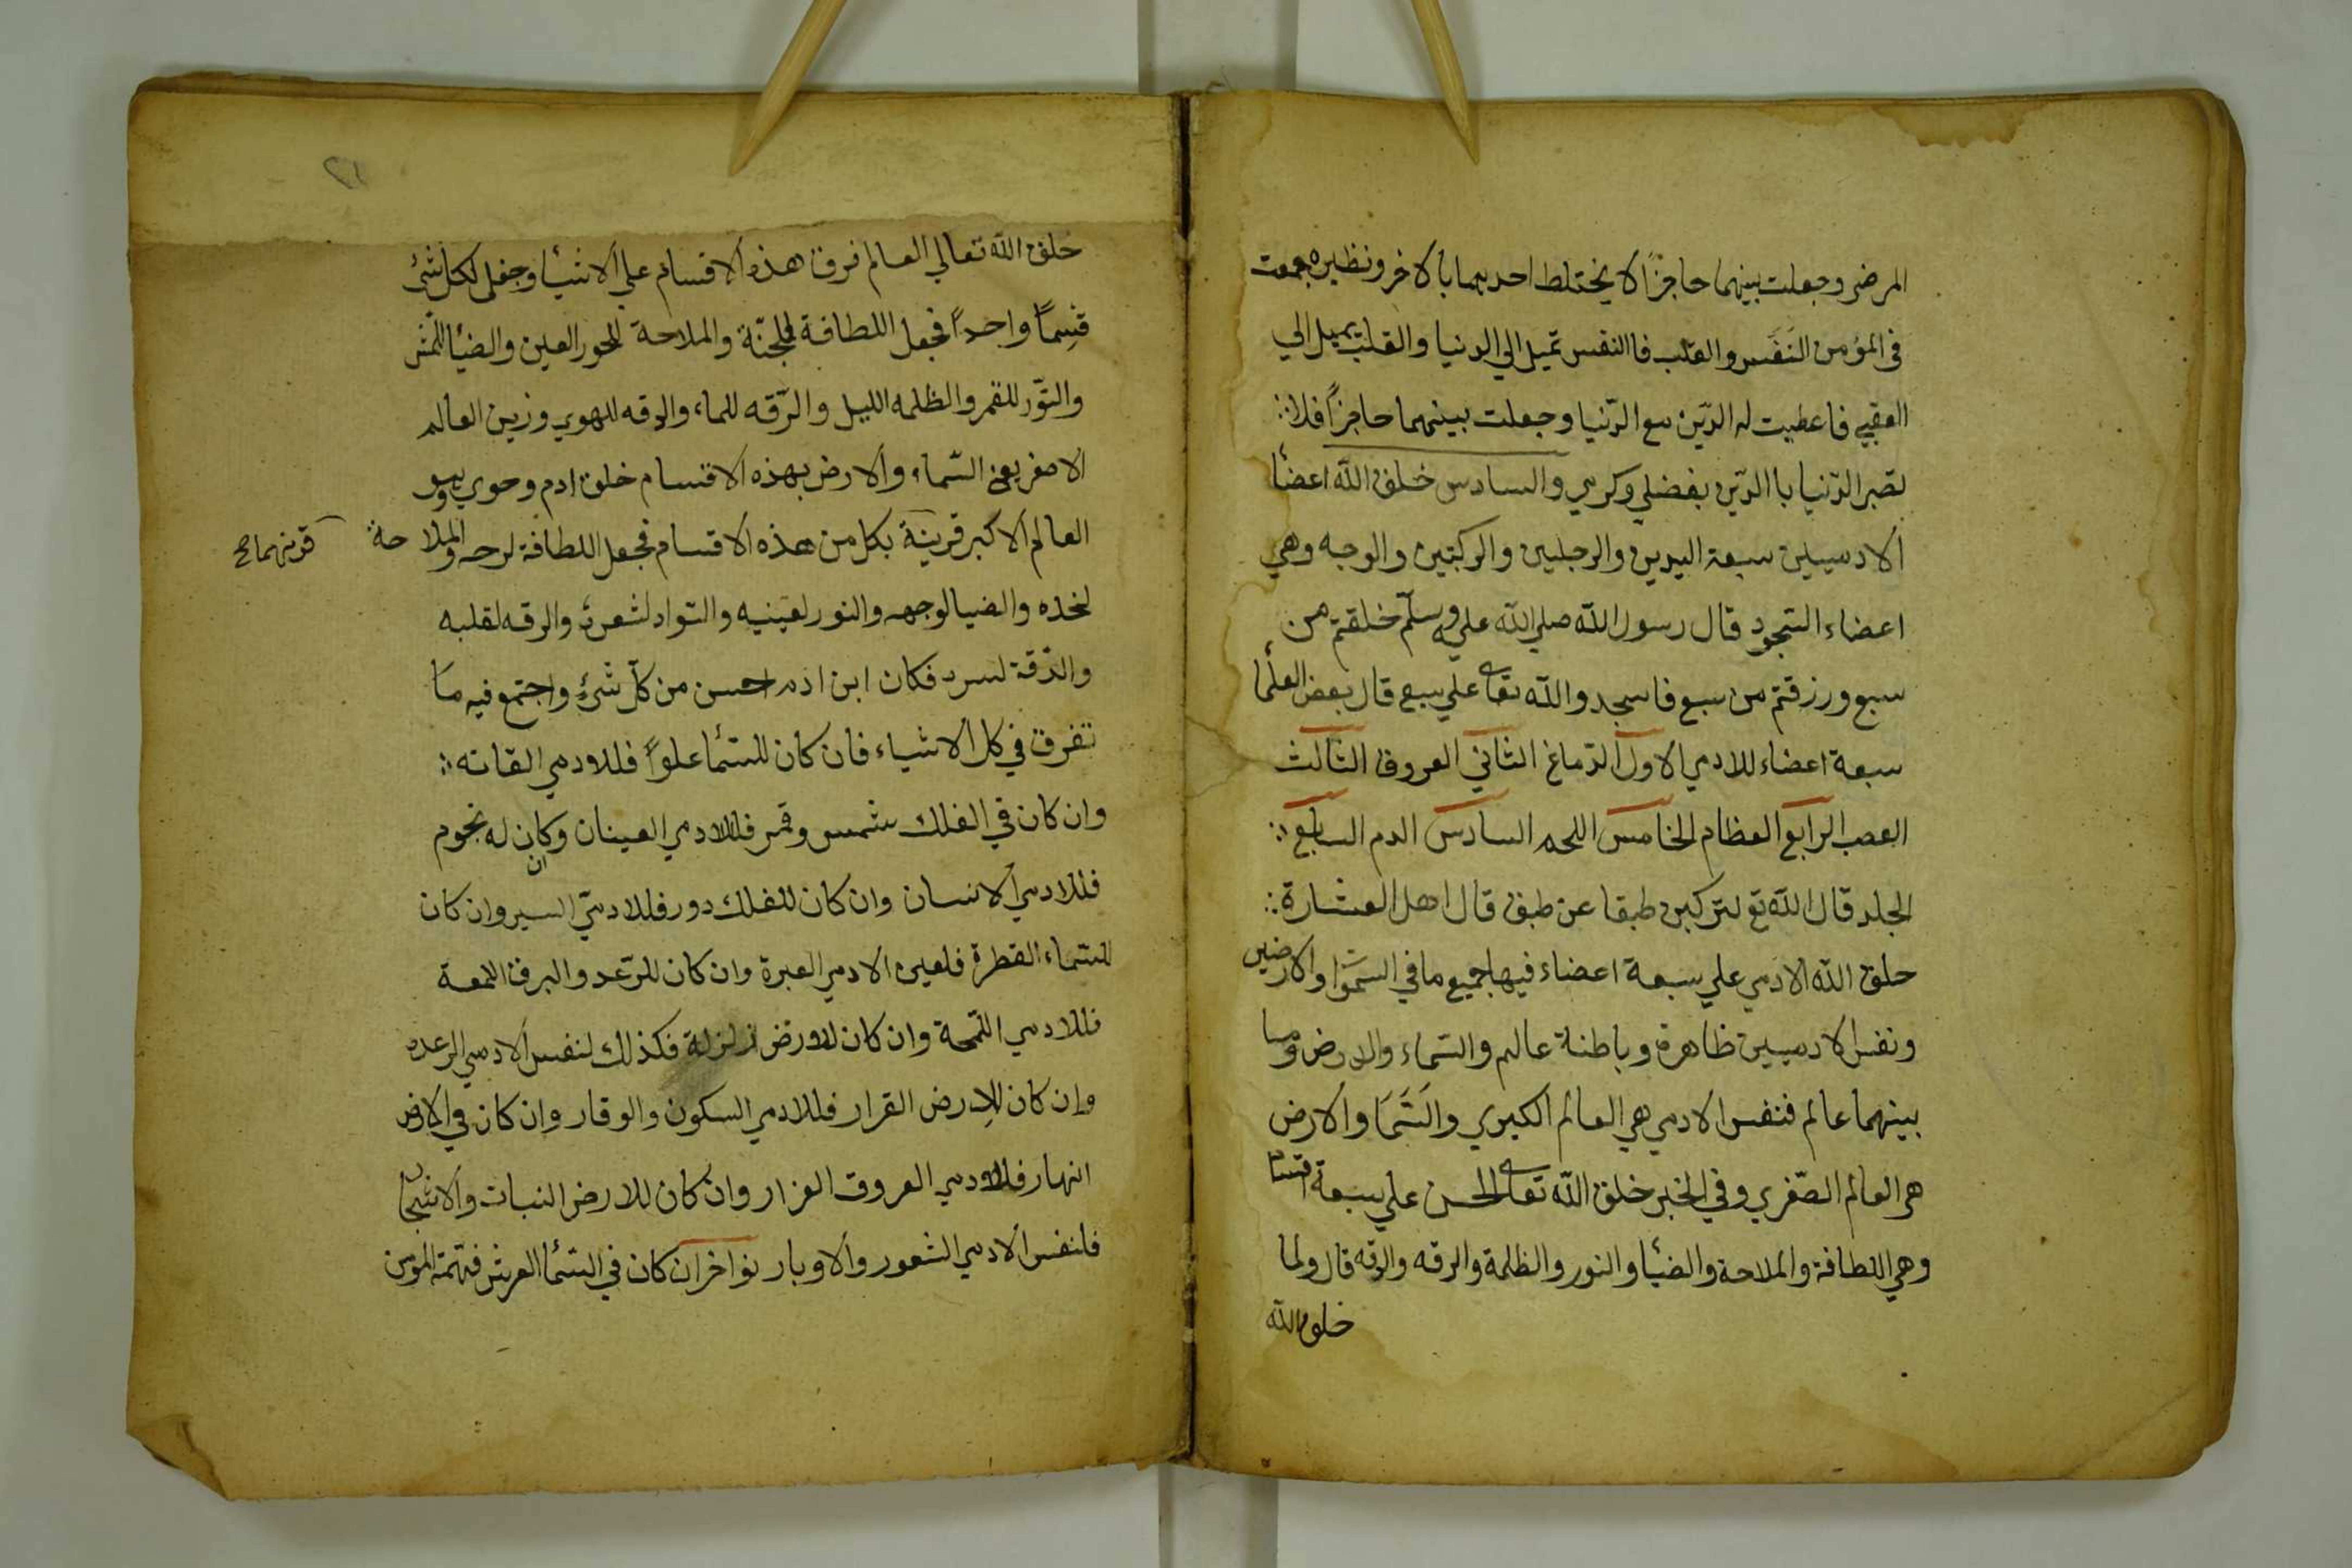 المرضي وجعلت بينهما حاجزًا لا يختلط احدبهما بالاخر ونظيره جمعت
في المؤمن النَفَس والقلب فاالنفس تميل الي الدنيا والقلب يميل الي
العقبي فاعطيت له الدّين مع الدّنيا وجعلت بينهما حاجزاً فلا
تصير الدّنيا باالدّين بفضلي وكرمي والسادس خلق الله اعضئا
الادميين سبعة اليدين والرجلين والركبتين والوجه وهي
اعضاء السّجود قال رسول الله صلي الله عليه وسلّم خلقتم من
سبع ورزقتم من سبع فاسجدو الله تعالى علي سبع قال بعض العلما
سبعة اعضاء للادمي الاول الدّماغ الثاني العروق الثالث
العصب الرابع العظام الخامس اللحم السادس الدم السابع
الجلد قال الله تع لتركبن طبقا عن طبق قال اهل العشارة
خلق الله الادمي علي سبعة اعضاء فيها جميع ما في السموا والارضين
ونفس الادميين ظاهرة وباطنة عالم والسّماء والارض وما
بينهما عالم فنفس الادمي هي العالم الكبري والسَّمَا والارض
هي العالم الصّغري وفي الخبر خلق الله تعالى الحسن علي سبعة اقسام
وهي اللطافة والملاحة والضئيا والنور والظلمة والرقه والدقه قال ولما
خلق الله
٢١
خلق الله تعالي العالم فرق هذه الاقسام علي الاشيئا وجعل لكل شئ
قسِماً واحداً فجعل اللطافة للجنّة والملاحة للحور العين والضئيا للشمس
والنّور للقمر والظلمه الليل والرّقه للماء والدقه للهوي وزين العالم
الاصغر يعني السّماء والارض بهذه الاقسام خلق ادم وحوي وهو
العالم الاكبر قرينة بكل من هذه الاقسام فجعل اللطافة لرحه والملاحة
قرنهما صح
لخده والضيا لوجهه والنور لعينيه والسّواد لشعره والرقه لقلبه
والدّقة لسره فكان ابن ادم احسن من كلّ شئٍ واجتمع فيه ما
تفرق في كل الاشياء فان كان للسّئما علواً فللادمي القاته
وان كان في الفلك شمس وقمر فللادمي العينان وكان له نجوم
فللادمي الانسان وان كان للفلك دور فللادميّ السير وان كان
للسّماء القطرة فلعين الادمي العبرة وان كان للرّعد والبرق اللمعة
فللادمي اللّمحة وان كان للارض زلزلة فكذلك لنفس الادمي الرعده
وان كان للارض القرار فللادمي السكون والوقار وان كان في الارض
انهار فللادمي العروق الغزار وان كان للارض النبات والاشجار
فلنفس الادمي الشعور والاوبار نو اخر ان كان في السّئما العرش فهمّة المؤمن